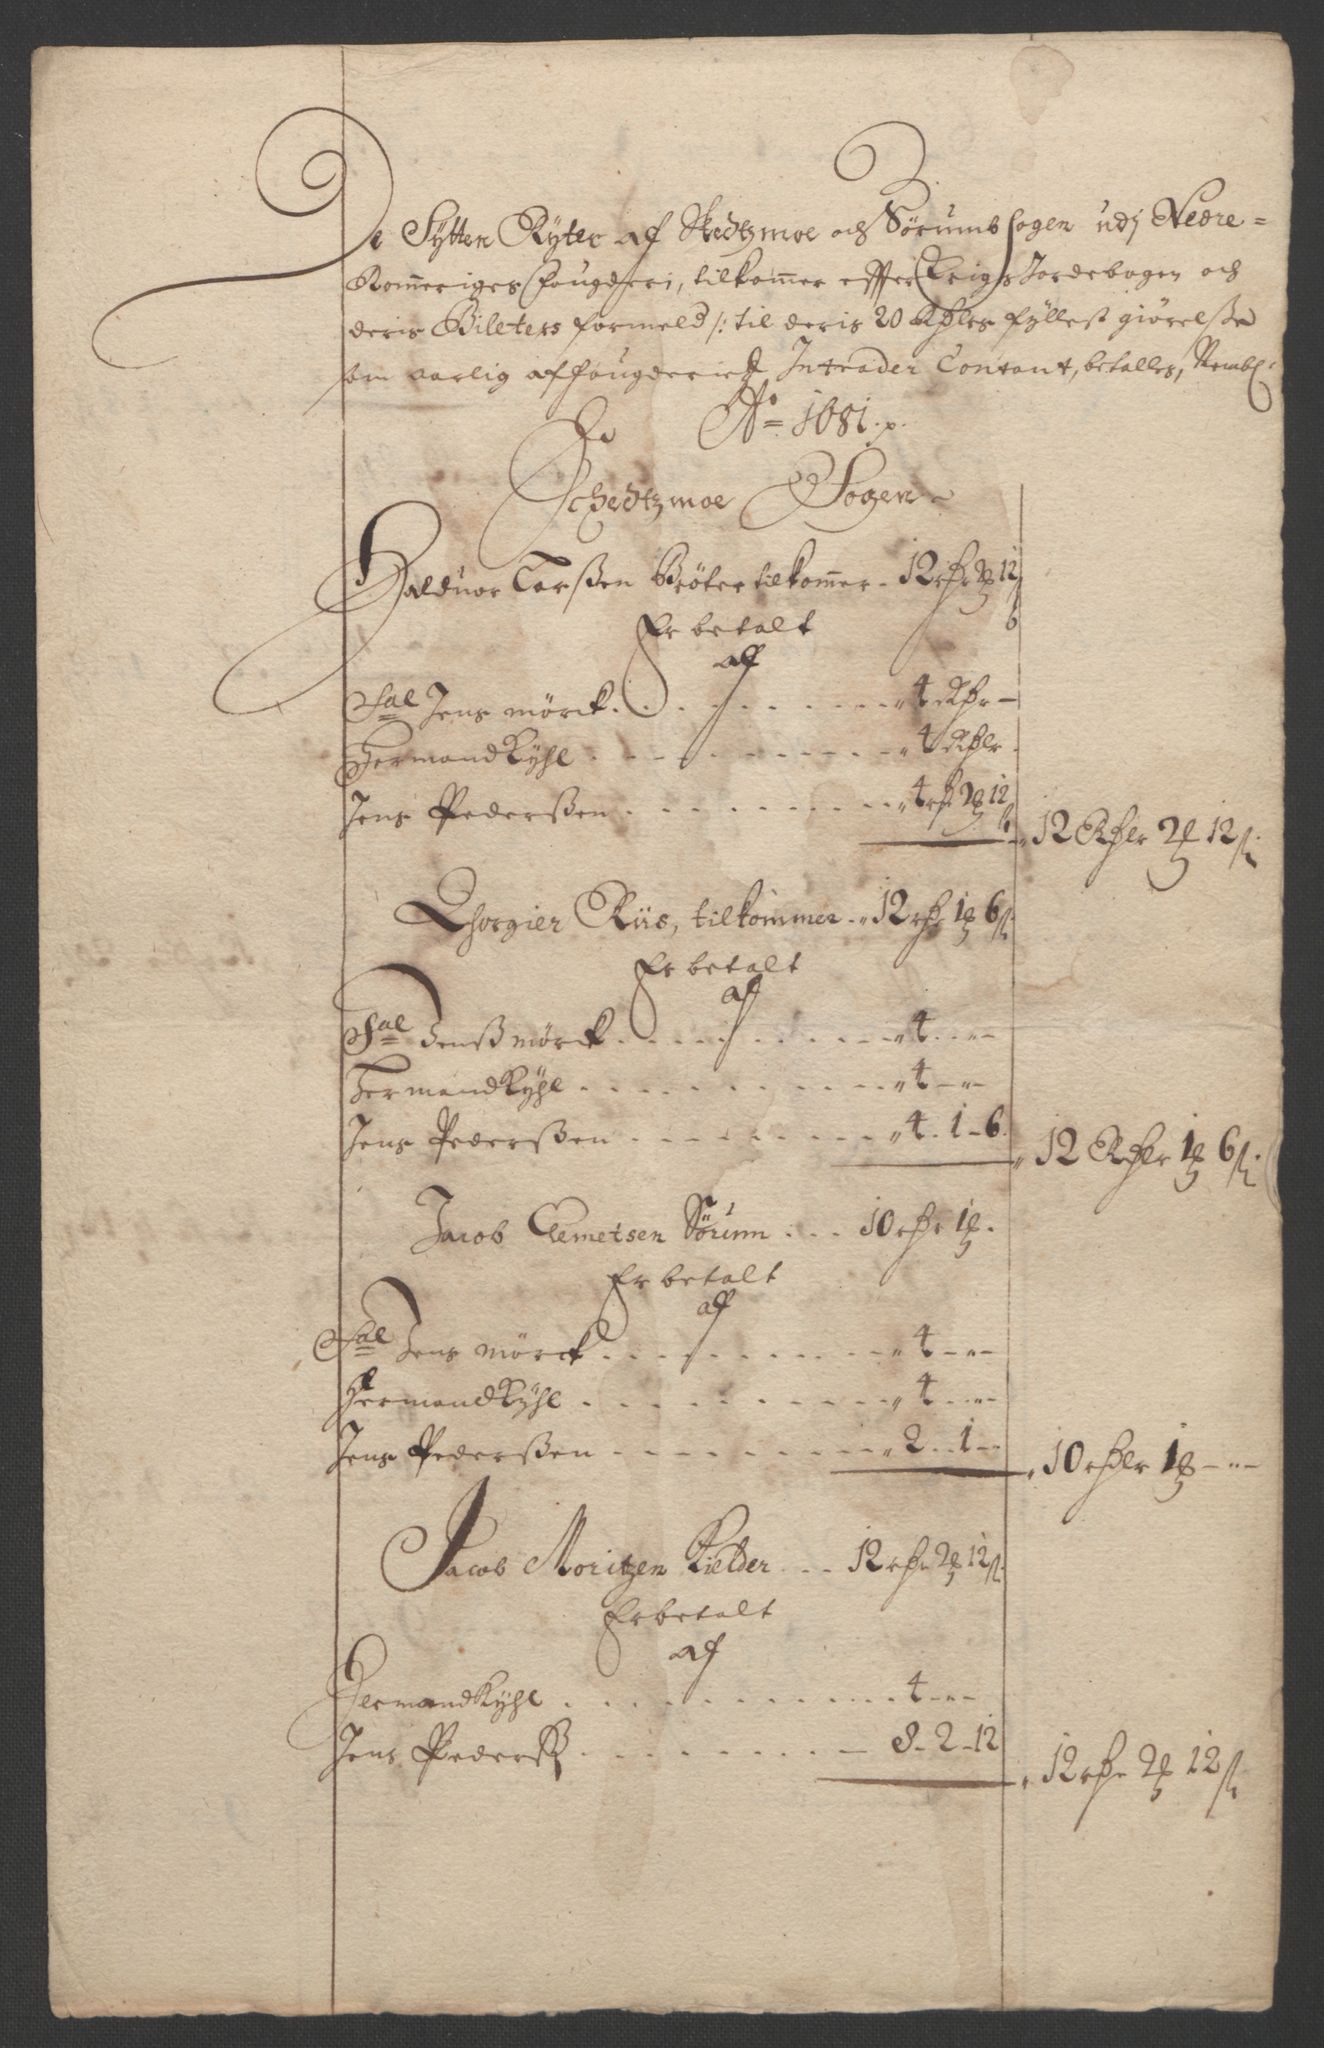 De Sÿtten Rÿter af Skedtzmoe och Sørumb sogen udj Nedre=
Rom̄eriges fougderi, tilkom̄er effter Krigs Jordebogen och
deris Bileters formeld /: til deris 20 Rdlrs fÿllest giørelsse
som aarlig af fougderied Intrader Contant, betalles, Nembl:
Ao 1681.
I
Schedtzmoe Sogen
Halduor Larssen Brøter tilkom̄er - 12 rdr 2 ort 12 ß
Er betalt
aff
Sal Jens mörck . . . . 4 Rdr -
Hermand Kÿhl . . . . 4 Rdlr -
Jens Pederssen . . . . 4 rdr 2 ort 12 ß - 12 Rdlr 2 ort 12 ß
Thorgier Riis, tilkommer - 12 rdr 1 ort 6 ß
Er betalt
af
Sal Jenss mørck . . . . 4 - " -
Hermand Kÿhl . . . . 4 - " -
Jens Pederssen . . . . 4 - 1 - 6 - 12 Rdlr 1 ort 6 ß
Jacob Clemetsen Sørum . . . 10 rdr 1 ort
Er betalt
aff
Sal Jens mörck . . . . 4 - " -
Hermand Kÿhl . . . . 4 - " -
Jens Pederssen . . . . 2 - 1 - 10 rdlr 1 ort - " -
Jacob Moritzen Kielder . . . 12 rdr 2 ort 12 ß
Er betalt
af
Hermand Kÿhl . . . . 4 - " -
Jens Pederss . . . . 8 - 2 - 12 - 12 rdr 2 ort 12 ß